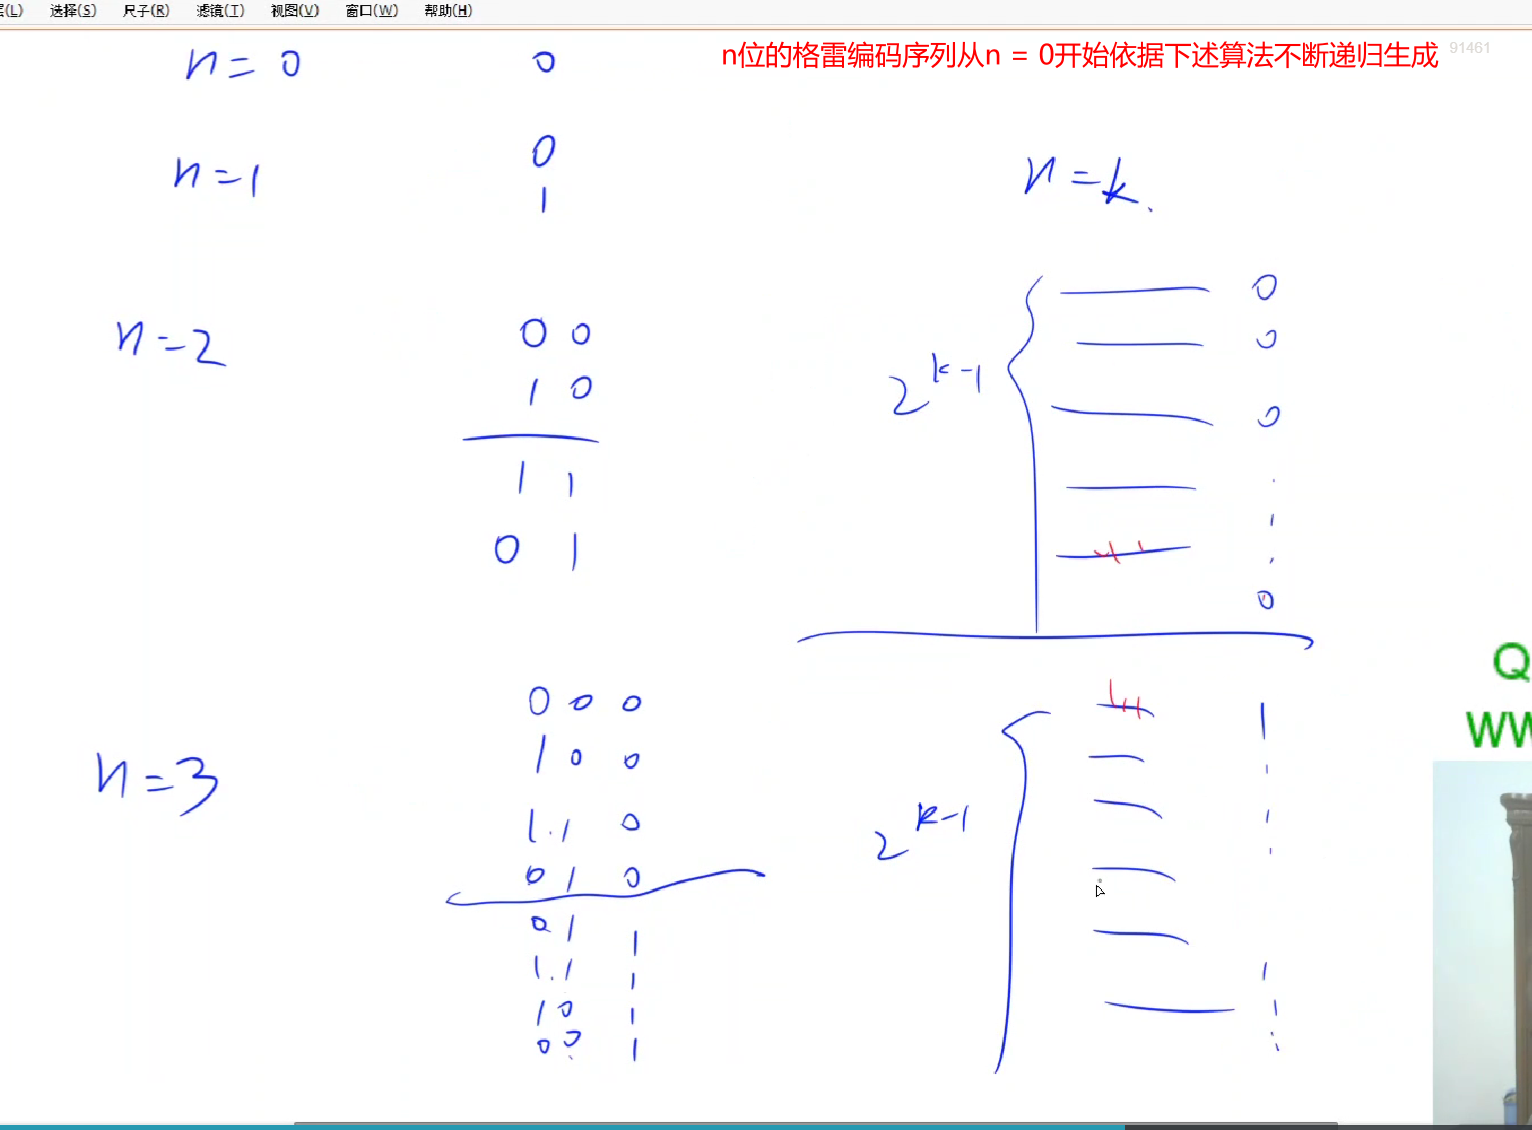 选择(S) 尺子(R) 滤镜(T) 视图(V) 窗口(W) 帮助(H)
n位的格雷编码序列从n = 0开始依据下述算法不断递归生成
91461
n = 0 0
n = 1 0
1
n = 2 0 0
1 0
1 1
0 1
n = 3 0 0 0
1 0 0
1 1 0
0 1 0
0 1 1
1 1 1
1 0 1
0 0 1
n = k.
2^{k-1} 0
0
0
0
2^{k-1} 1
1
1
Q
WW